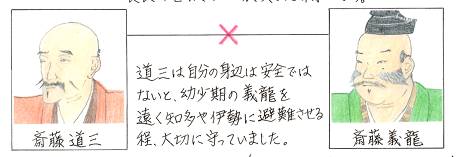 道三は自分の身辺は安全では
ないと、幼少期の義龍を
遠く知多や伊勢に避難させる
程、大切に守っていました。
斎藤道三
斎藤義龍